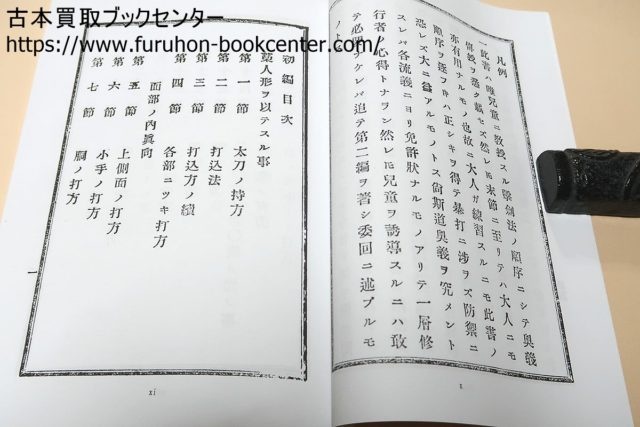 古本買取ブックセンター
https://www.furuhon-bookcenter.com/
凡例
一此書ハ唯兒童ニ教授スル擊劍法ノ順序ニシテ奥義
傳授ヲ悉ク載セズ然レ𪜈末節ニ至リテハ大人ニモ
亦有用ナルモノ也故ニ大人ガ練習スルニモ此書ノ
順序ヲ逐フ𪜈ハ正シキヲ得テ暴打ニ涉ヲズ防禦ニ
恐レズ大ニ益アルモノトス尙斯道奥義ヲ究メント
スレバ各流義ニヨリ免許狀ナルモノアリテ一層修
行者ノ心得トナヲン然レ𪜈兒童ヲ誘導スルニハ敢
テ必用ナケレバ追テ第二編ヲ著シ委回ニ述ブルモ
ノトス
x
初編目次
藁人形ヲ以テスル事
第一節 太刀ノ持方
第二節 打込法
第三節 打込方ノ續
第四節 各部ニツキ打方
面部ノ內眞向
第五節 上側面ノ打方
第六節 小手ノ打方
第七節 胴ノ打方
一
xi